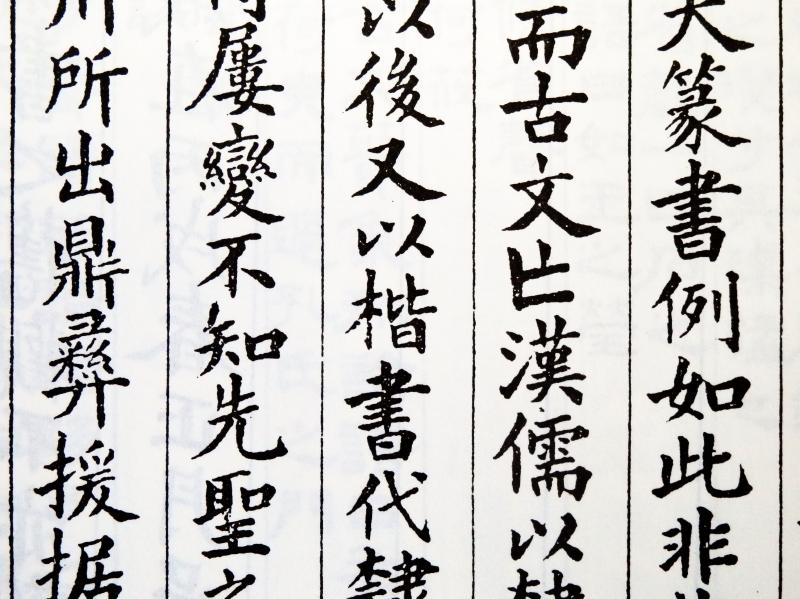 大篆書例如此非
而古文亡漢儒以隸
以後又以楷書代隸
屢變不知先聖之
川所出鼎彝援据